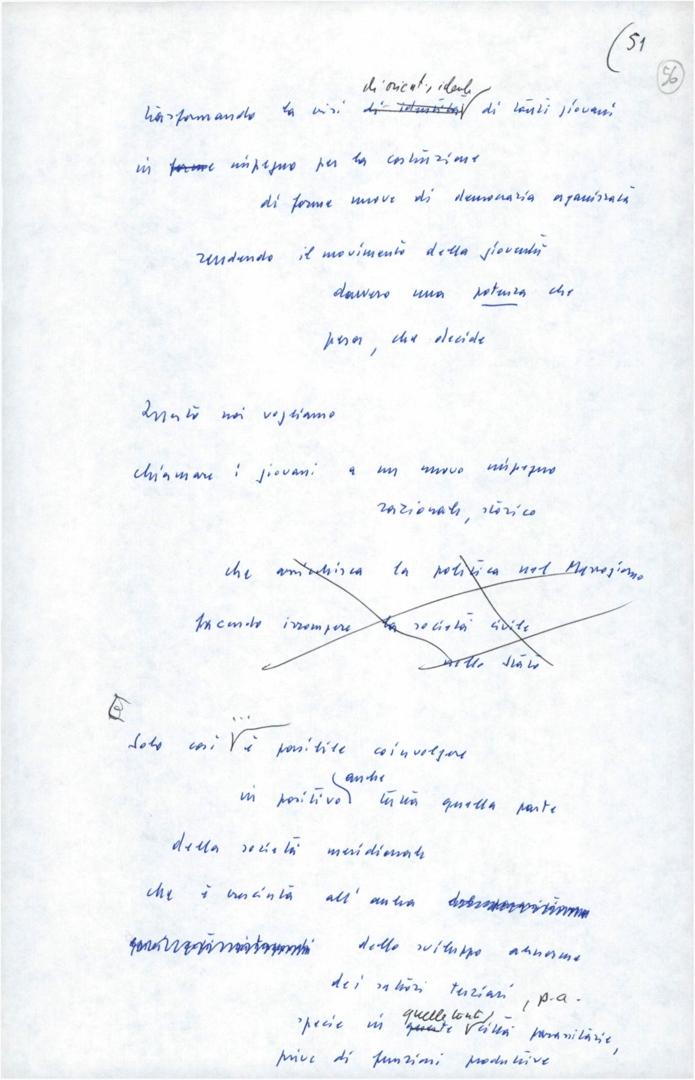 (51
56
di orient. ideale
trasformando la crisi di identità di tanti giovani
in forme impegno per la costruzione
di forme nuove di democrazia organizzata
rendendo il movimento della gioventù
davvero una potenza che
pesa, che decide
Questo noi vogliamo
chiamare i giovani a un nuovo impegno
razionale, storico
che arricchisca la politica nel Mezzogiorno
facendo irrompere la società civile
nello Stato
Solo così ... è possibile coinvolgere
in positivo anche tutta quella parte
della società meridionale
che è cresciuta all'ombra
dello sviluppo abnorme
dei settori terziari, p.a.
specie in quelle tante città parassitarie,
prive di funzioni produttive